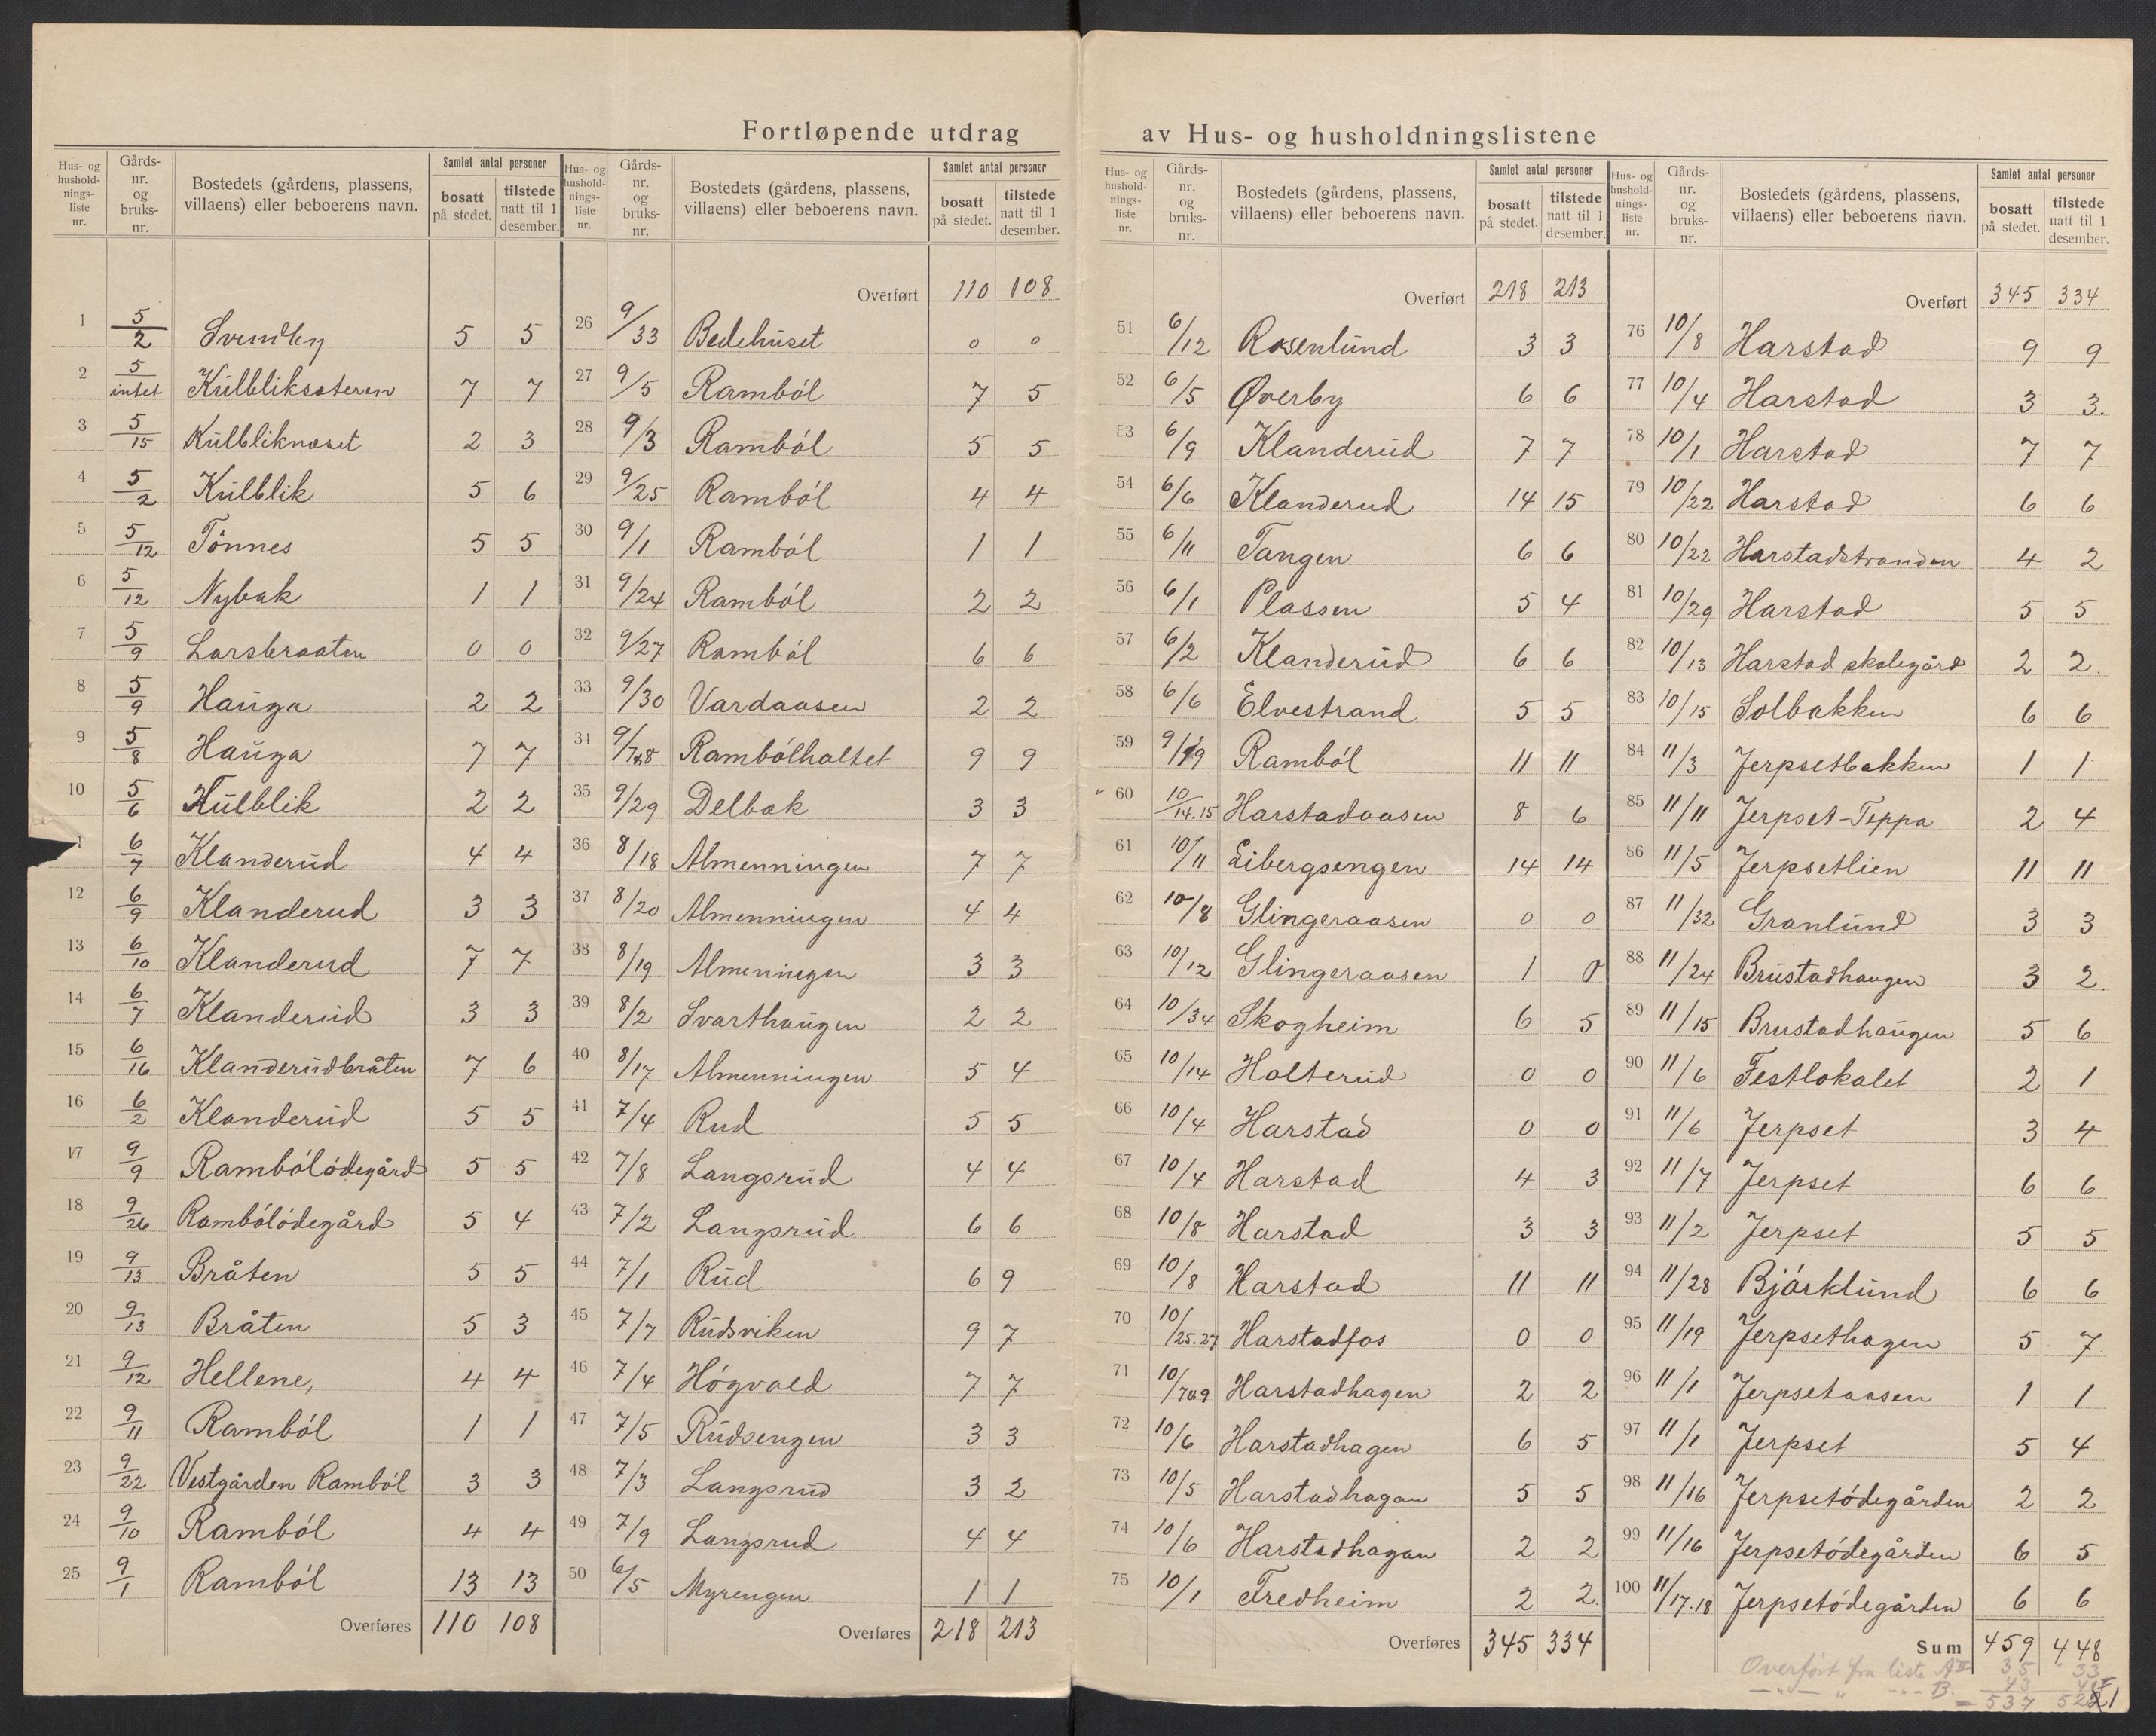 Fortløpende utdrag av Hus- og husholdningslistene
Hus- og husholdnings-liste nr. | Gårds-nr. og bruks-nr. | Bostedets (gårdens, plassens, villaens) eller beboerens navn. | Samlet antal personer | bosatt på stedet. | tilstede natt til 1 desember.
1 5/2 Svendby 5 5
2 5/intet Külbliksæteren 7 7
3 5/15 Külbliknæset 2 3
4 5/2 Külblik 5 6
5 5/12 Tönnes 5 5
6 5/12 Nybak 1 1
7 5/9 Larsbraaten 0 0
8 5/9 Hauga 2 2
9 5/8 Hauga 7 7
10 5/6 Külblik 2 2
1 6/7 Klanderud 4 4
12 6/9 Klanderud 3 3
13 6/10 Klanderud 7 7
14 6/7 Klanderud 3 3
15 6/16 Klanderudbråten 7 6
16 6/2 Klanderud 5 5
17 9/9 Rambólódegård 5 5
18 9/26 Rambólódegård 5 4
19 9/13 Bråten 5 5
20 9/13 Bråten 5 3
21 9/12 Hellene, 4 4
22 9/11 Ramból 1 1
23 9/22 Vestgården Ramból 3 3
24 9/10 Ramból 4 4
25 9/1 Ramból 13 13
Overføres 110 108
Hus- og husholdnings-liste nr. | Gårds-nr. og bruks-nr. | Bostedets (gårdens, plassens, villaens) eller beboerens navn. | Samlet antal personer | bosatt på stedet. | tilstede natt til 1 desember.
Overført 110 108
26 9/33 Bedehuset 0 0
27 9/5 Ramból 7 5
28 9/3 Ramból 5 5
29 9/25 Ramból 4 4
30 9/1 Ramból 1 1
31 9/24 Ramból 2 2
32 9/27 Ramból 6 6
33 9/30 Vardaasen 2 2
34 9/7&8 Rambólholtet 9 9
35 9/29 Delbak 3 3
36 8/18 Almenningen 7 7
37 8/20 Almenningen 4 4
38 8/19 Almenningen 3 3
39 8/2 Svarthaugen 2 2
40 8/17 Almenningen 5 4
41 7/4 Rud 5 5
42 7/8 Langsrud 4 4
43 7/2 Langsrud 6 6
44 7/1 Rud 6 9
45 7/7 Rudsviken 9 7
46 7/4 Högvald 7 7
47 7/5 Rudsengen 3 3
48 7/3 Langsrud 3 2
49 7/9 Langsrud 4 4
50 6/5 Myrengen 1 1
Overføres 218 213
Hus- og husholdnings-liste nr. | Gårds-nr. og bruks-nr. | Bostedets (gårdens, plassens, villaens) eller beboerens navn. | Samlet antal personer | bosatt på stedet. | tilstede natt til 1 desember.
Overført 218 213
51 6/12 Rosenlund 3 3
52 6/5 Øverby 6 6
53 6/9 Klanderud 7 7
54 6/6 Klanderud 14 15
55 6/11 Tangen 6 6
56 6/1 Plassen 5 4
57 6/2 Klanderud 6 6
58 6/6 Elvestrand 5 5
59 9/19 Ramból 11 11
60 10/14.15 Harstadaasen 8 6
61 10/11 Libergsengen 14 14
62 10/8 Glingeraasen 0 0
63 10/12 Glingeraasen 1 0
64 10/34 Skogheim 6 5
65 10/14 Holterud 0 0
66 10/4 Harstad 0 0
67 10/4 Harstad 4 3
68 10/8 Harstad 3 3
69 10/8 Harstad 11 11
70 10/25.27 Harstadfos 0 0
71 10/7&9 Harstadhagen 2 2
72 10/6 Harstadhagen 6 5
73 10/5 Harstadhagan 5 5
74 10/6 Harstadhagan 2 2
75 10/1 Fredheim 2 2.
Overføres 345 334
Hus- og husholdnings-liste nr. | Gårds-nr. og bruks-nr. | Bostedets (gårdens, plassens, villaens) eller beboerens navn. | Samlet antal personer | bosatt på stedet. | tilstede natt til 1 desember.
Overført 345 334
76 10/8 Harstad 9 9
77 10/4 Harstad 3 3.
78 10/1 Harstad 7 7
79 10/22 Harstad 6 6
80 10/22 Harstadstranden 4 2
81 10/29 Harstad 5 5
82 10/13 Harstad skolegård 2 2.
83 10/15 Solbakken 6 6
84 11/3 Jerpsetbakken 1 1
85 11/11 Jerpset-Teppa 2 4
86 11/5 Jerpsetlien 11 11
87 11/32 Granlund 3 3
88 11/24 Brustadhaugen 3 2.
89 11/15 Brustadhaugen 5 6
90 11/6 Festlokalet 2 1
91 11/6 Jerpset 3 4
92 11/7 Jerpset 6 6
93 11/2 Jerpset 5 5
94 11/28 Bjórklund 6 6
95 11/19 Jerpsethagen 5 7
96 11/1 Jerpsetaasen 1 1
97 11/1 Jerpset 5 4
98 11/16 Jerpsetódegården 2 2
99 11/16 Jerpsetódegården 6 5
100 11/17.18 Jerpsetódegården 6 6
Sum 459 448
Overført fra liste A II 35 33
— " — " — " — B. 43
= 537